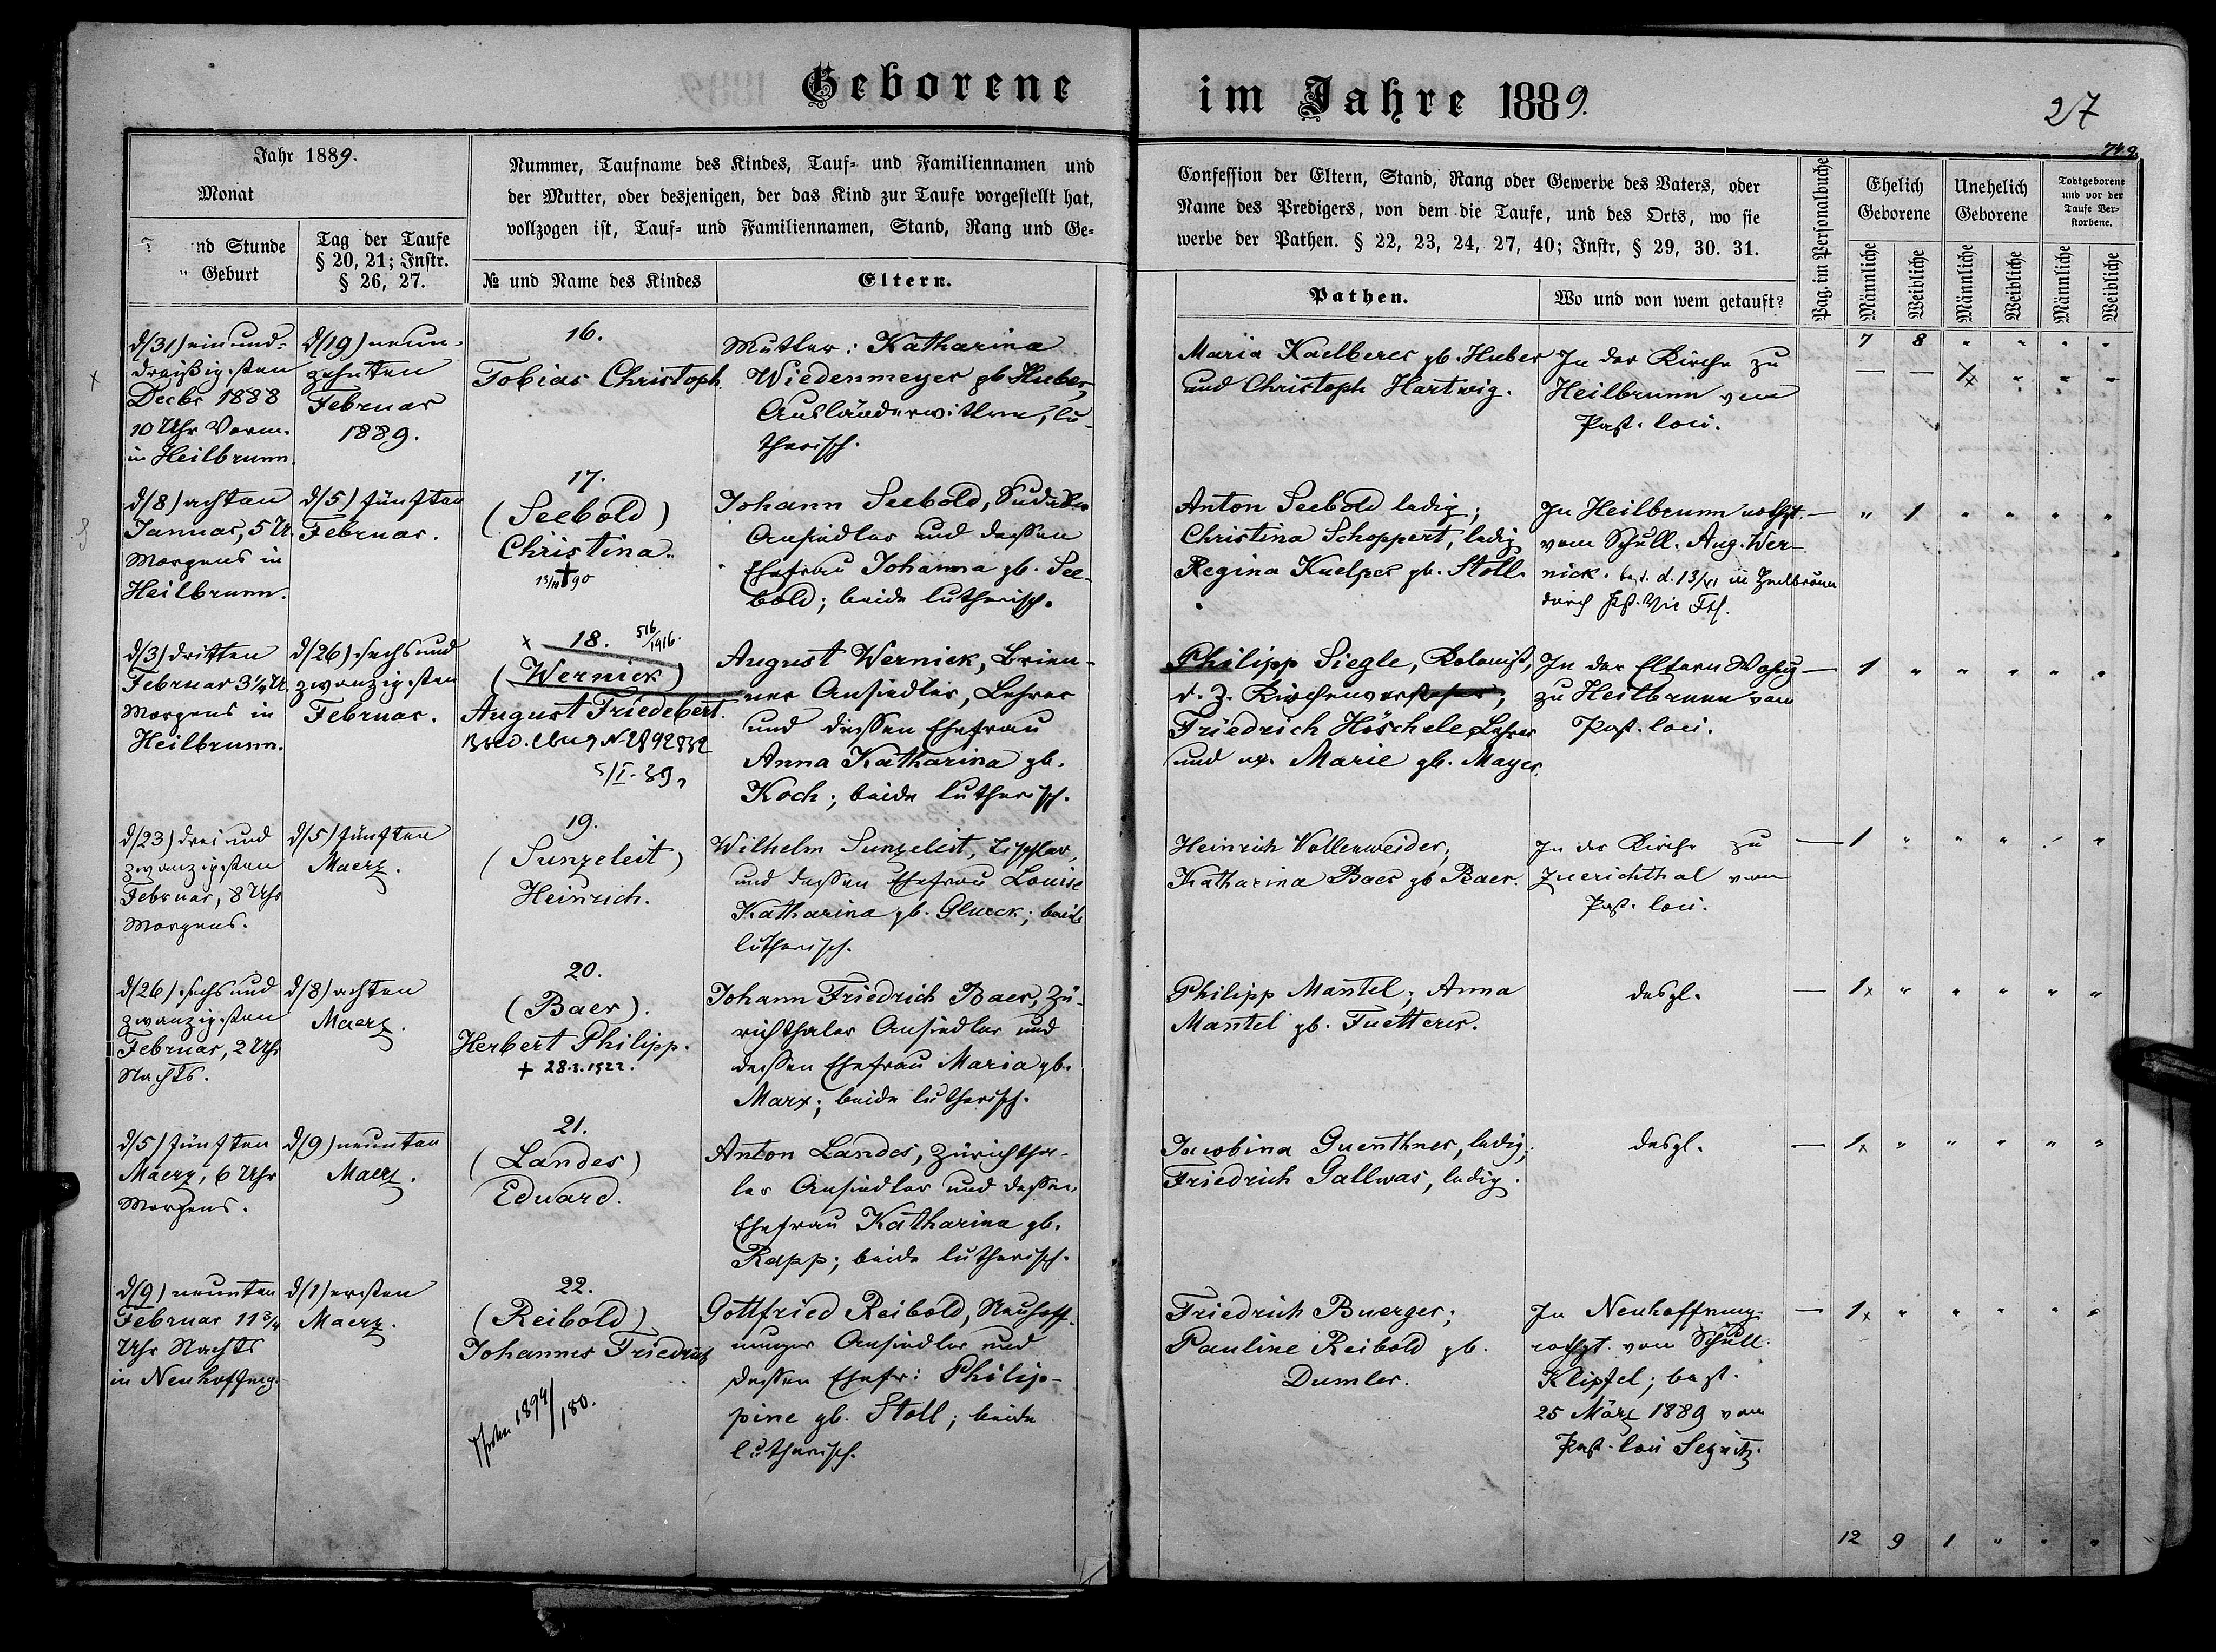 Geborene im Jahre 1889.
27
749.
Jahr 1889.
Monat
nd Stunde
" Geburt
Tag der Taufe
§ 20, 21; Instr.
§ 26, 27.
Nummer, Taufname des Kindes, Tauf- und Familiennamen und
der Mutter, oder desjenigen, der das Kind zur Taufe vorgestellt hat,
vollzogen ist, Tauf- und Familiennamen, Stand, Rang und Ge-
№ und Name des Kindes
Eltern.
Confession der Eltern, Stand, Rang oder Gewerbe des Vaters, oder
Name des Predigers, von dem die Taufe, und des Orts, wo sie
werbe der Pathen. § 22, 23, 24, 27, 40; Instr, § 29, 30. 31.
Pathen.
Wo und von wem getauft?
Pag. im Personalbuche
Ehelich
Geborene
Unehelich
Geborene
Todtgeborene
und vor der
Taufe Ver-
storbene.
Männliche
Weibliche
Männliche
Weibliche
Männliche
Weibliche
7 8 " " " "
d/31) ein und-
dreißigsten
Decbr 1888
10 Uhr Vorm.
in Heilbrunn.
d/19) neun-
zehnten
Februar
1889.
16.
Tobias Christoph
Mutter: Katharina
Wiedenmeyer gb. Huber,
Ausländerwittwe, lu-
therisch.
Maria Kaelberer gb. Huber
und Christoph Hartwig.
In der Kirche zu
Heilbrunn vom
Past. loci.
— — 1x " " "
d/8) achten
Januar, 5 U.
Morgens in
Heilbrunn.
d/5) fünften
Februar.
17.
(Seebold)
Christina.
†
Johann Seebold, Sudaker
Ansiedler und dessen
Ehefrau Johanna gb. See-
bold; beide lutherisch.
Anton Seebold ledig;
Christina Schoppert, ledig
Regina Kuelper gb. Stoll.
In Heilbrunn nothgt.
vom Schull. Aug. Wer-
nick. best. d. 13/VI in Heilbrunn
durch Past. Vic
— " 1 " " " "
d/3) dritten
Februar 3¼ U.
Morgens in
Heilbrunn.
d/26) sechs und
zwanzigsten
Februar.
x 18. 516/1916.
(Wernick)
August Friedebert.
5/I-39
August Wernick, Brien-
ner Ansiedler, Lehrer
und dessen Ehefrau
Anna Katharina gb.
Koch; beide lutherisch.
Philipp Siegle, Kolonist,
d. Z. Kirchenvorsteher,
Friedrich Höschele, Lehrer
und ux. Marie gb. Mayer.
In der Eltern Wohng
zu Heilbrunn vom
Past. loci.
— 1 " " " " "
d/23) drei und
zwanzigsten
Februar, 8 Uhr
Morgens.
d/5) fünften
Maerz.
19.
(Sunzeleit)
Heinrich.
Wilhelm Sunzeleit, Tischler,
und dessen Ehefrau Louise
Katharina gb. Glueck; beide
lutherisch.
Heinrich Vollenweider;
Katharina Baer gb. Baer.
In der Kirche zu
Zuerichthal vom
Past. loci.
— 1 " " " " "
d/26) sechs und
zwanzigsten
Februar, 2 Uhr
Nachts.
d/8) achten
Maerz.
20.
(Baer).
Herbert Philipp.
† 28.3.1922.
Johann Friedrich Baer, Zü-
richthaler Ansiedler und
dessen Ehefrau Maria gb.
Marx; beide lutherisch.
Philipp Mantel; Anna
Mantel gb. Fuetterer.
desgl.
— 1x " " " " "
d/5) fünften
Maerz, 6 Uhr
Morgens.
d/9) neunten
Maerz.
21.
(Landes)
Eduard.
Anton Landes, Zürichtha-
ler Ansiedler und dessen
Ehefrau Katharina gb.
Rapp; beide lutherisch.
Jacobina Guenthner, ledig;
Friedrich Gallwas, ledig.
desgl.
— 1x " " " " "
d/9) neunten
Februar 11¾
Uhr Nachts
in Neuhoffnng.
d/1) ersten
Maerz.
22.
(Reibold)
Johannes Friedrich
1894/180.
Gottfried Reibold, Neuhoff-
nunger Ansiedler und
dessen Ehefr: Philip-
pine gb. Stoll; beide
lutherisch.
Friedrich Buerger;
Pauline Reibold gb.
Dumler.
In Neuhoffnung
nothgt. vom Schull.
Klipfel; best.
25 März 1889 vom
Past. loci Segnitz.
— 1x " " " " "
12 9 1 " " "